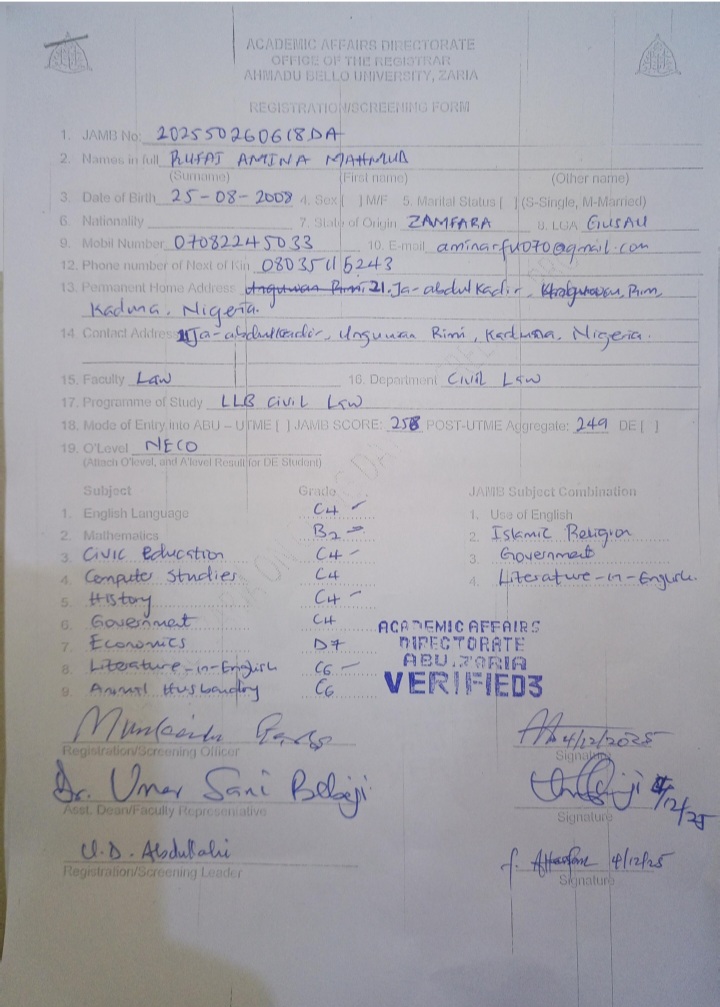 ACADEMIC AFFAIRS DIRECTORATE
OFFICE OF THE REGISTRAR
AHMADU BELLO UNIVERSITY, ZARIA
REGISTRATION/SCREENING FORM
1. JAMB No: 202550260618DA
2. Names in full RUFAI AMINA MAHMUD
(Surname) (First name) (Other name)
3. Date of Birth 25-08-2008 4. Sex [ ] M/F 5. Marital Status [ ] (S-Single, M-Married)
6. Nationality 7. State of Origin ZAMFARA 8. LGA GUSAU
9. Mobil Number 07082245033 10. E-mail aminarfu070@gmail.com
12. Phone number of Next of Kin 08035115243
13. Permanent Home Address Unguwan Rimi 21, Ja-abdulkadir, Rimi,
Kaduna, Nigeria.
14. Contact Address Ja-abdulkadir, Unguwan Rimi, Kaduna, Nigeria.
15. Faculty Law 16. Department Civil Law
17. Programme of Study LLB Civil Law
18. Mode of Entry into ABU – UTME [ ] JAMB SCORE: 258 POST-UTME Aggregate: 249 DE [ ]
19. O'Level NECO
(Attach O'level, and A'level Result for DE Student)
Subject Grade JAMB Subject Combination
1. English Language C4 1. Use of English
2. Mathematics B2 2. Islamic Religion
3. Civic Education C4 3. Government
4. Computer Studies C4 4. Literature-in-English.
5. History C4
6. Government C4
7. Economics D7
8. Literature-in-English C6
9. Animal Husbandry C6
ACADEMIC AFFAIRS
DIRECTORATE
ABU. ZARIA
VERIFIED3
4/12/2025
Registration/Screening Officer Signature
Dr. Umar Sani Bebeji 4/12/25
Asst. Dean/Faculty Representative Signature
U.D. Abdullahi 4/12/25
Registration/Screening Leader Signature